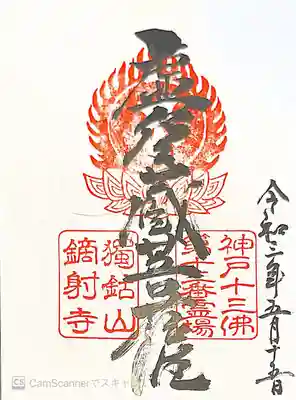 令和三年五月十五日
虚空蔵菩薩
神戸十三佛
霊場
獨鈷山
鏑射寺
CS CamScannerでスキャン